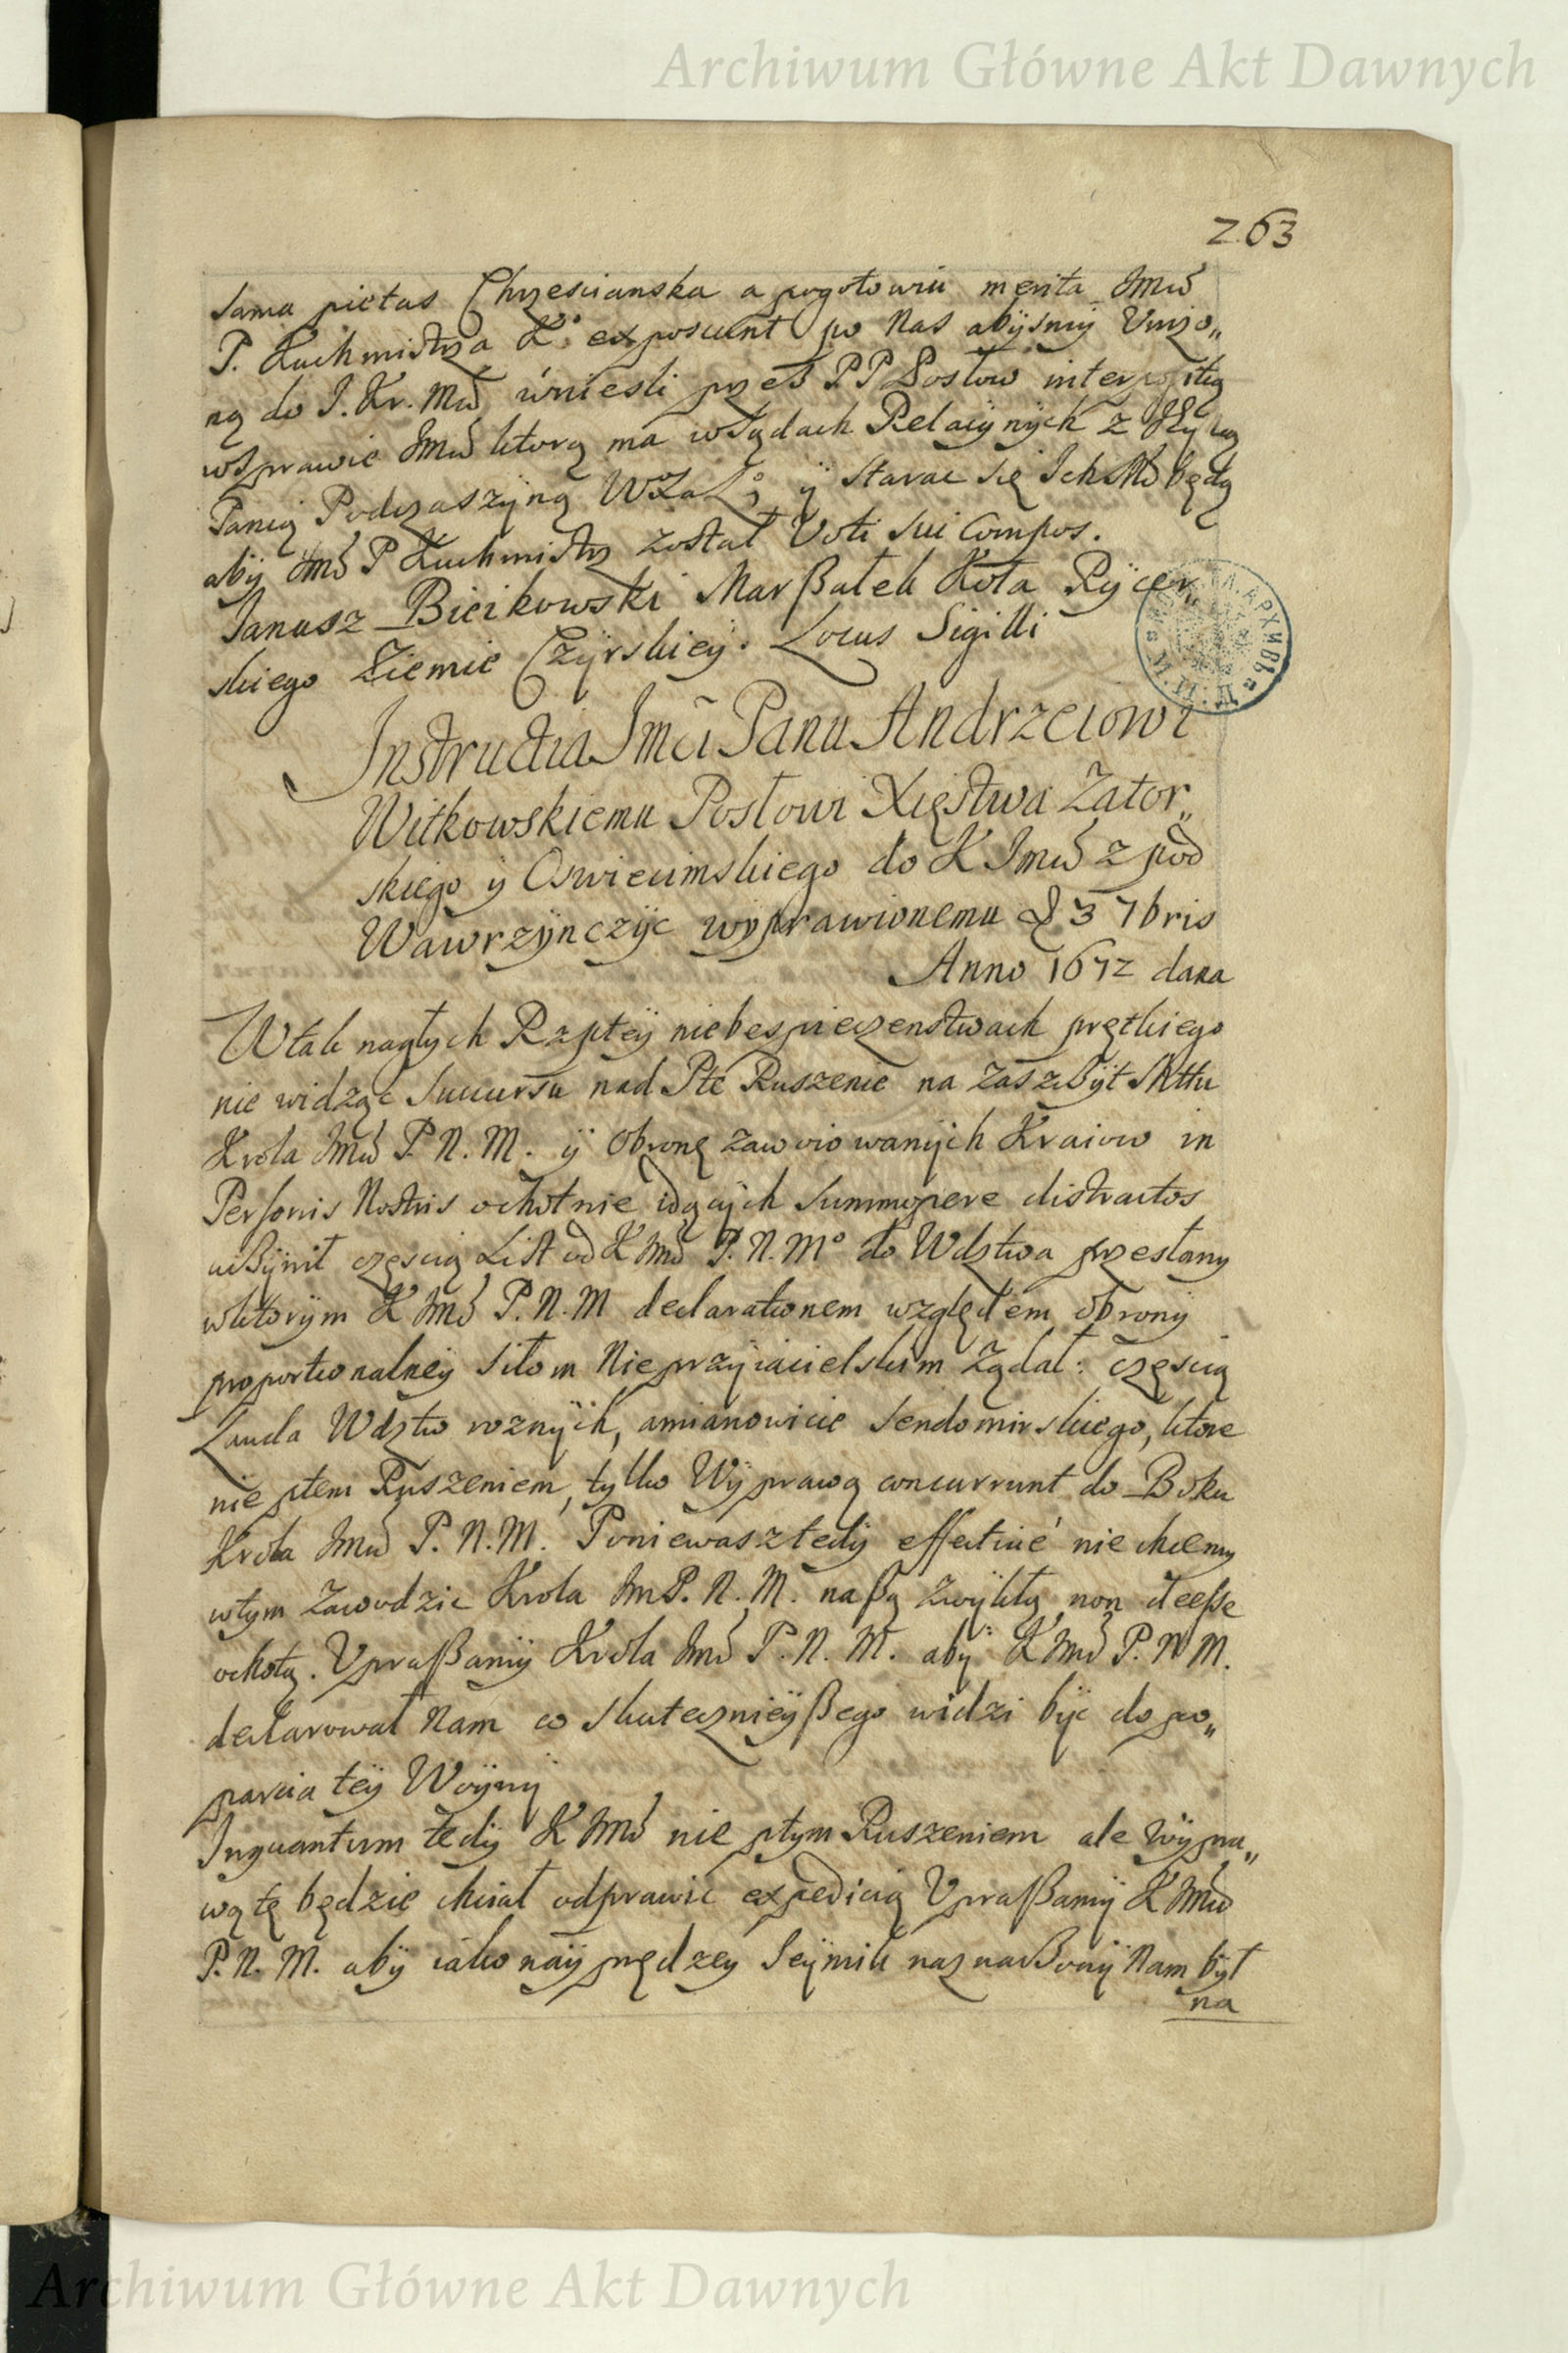 Archiwum Główne Akt Dawnych
263
sama pietas Chrzescianska a pogotowiu merita Jmć
P. Kuchmistrza K° exposcunt po Nas abyśmy Unizo„
ną do J. Kr. Mći wniesli przeß PP Posłow interpositią
wsprawie Jmći ktorą ma wSądach Relacyinych z
Panią Podczaszyną y starac się Ich będą
aby Jmć P Kuchmistrz został Voti sui Compos.
Janusz Bieikowski Marßałek Koła Rycer„
skiego Ziemie Czyrskiey. Locus Sigilli
Instructia Jmći Panu Andrzeiowi
Witkowskiemu Posłowi Xięstwa Zator„
skiego y Oswiecimskiego do K Jmći z pod
Wawrzynczyc wyprawionemu D 3 7bris
Anno 1672 dana
Wtak nagłych Rzptey niebespieczenstwach prętkiego
nie widząc succursu nad Pte Ruszenie na zaszczyt Mttu
Krola Jmći P. N. M. y Obronę zawoiowanych Kraiow in
Personis Nostris ochotnie idących summopere distractos
uczynił częscią List od K Jmć P. N. M° do Wdztwa przesłany
wktorym K Jmć P. N. M declarationem względem obrony
proportionalney siłom Nieprzyiacielskim Ządał: częscią
Lauda Wdztw roznych, amianowicie Sendomirskiego, ktore
nie ptem Ruszeniem, tylko Wyprawą concurrunt do Boku
Krola Jmći P. N. M. Poniewasz tedy effective nie chcemy
wtym zawodzic Krola Jm P. N. M. naßą zwykłą non deesse
ochotą. Upraßamy Krola Jmć P. N. M. aby K Jmć P. N M.
declarował Nam co skutecznieyßego widzi byc do po„
parcia tey Woyny
Inquantum tedy K Jmć nie ptym Ruszeniem ale Wypra„
wą tę będzie chciał odprawic expedicią Upraßamy K Jmći
P. N. M. aby iako nayprędzey Seymik naznaczony Nam był
na
Archiwum Główne Akt Dawnych